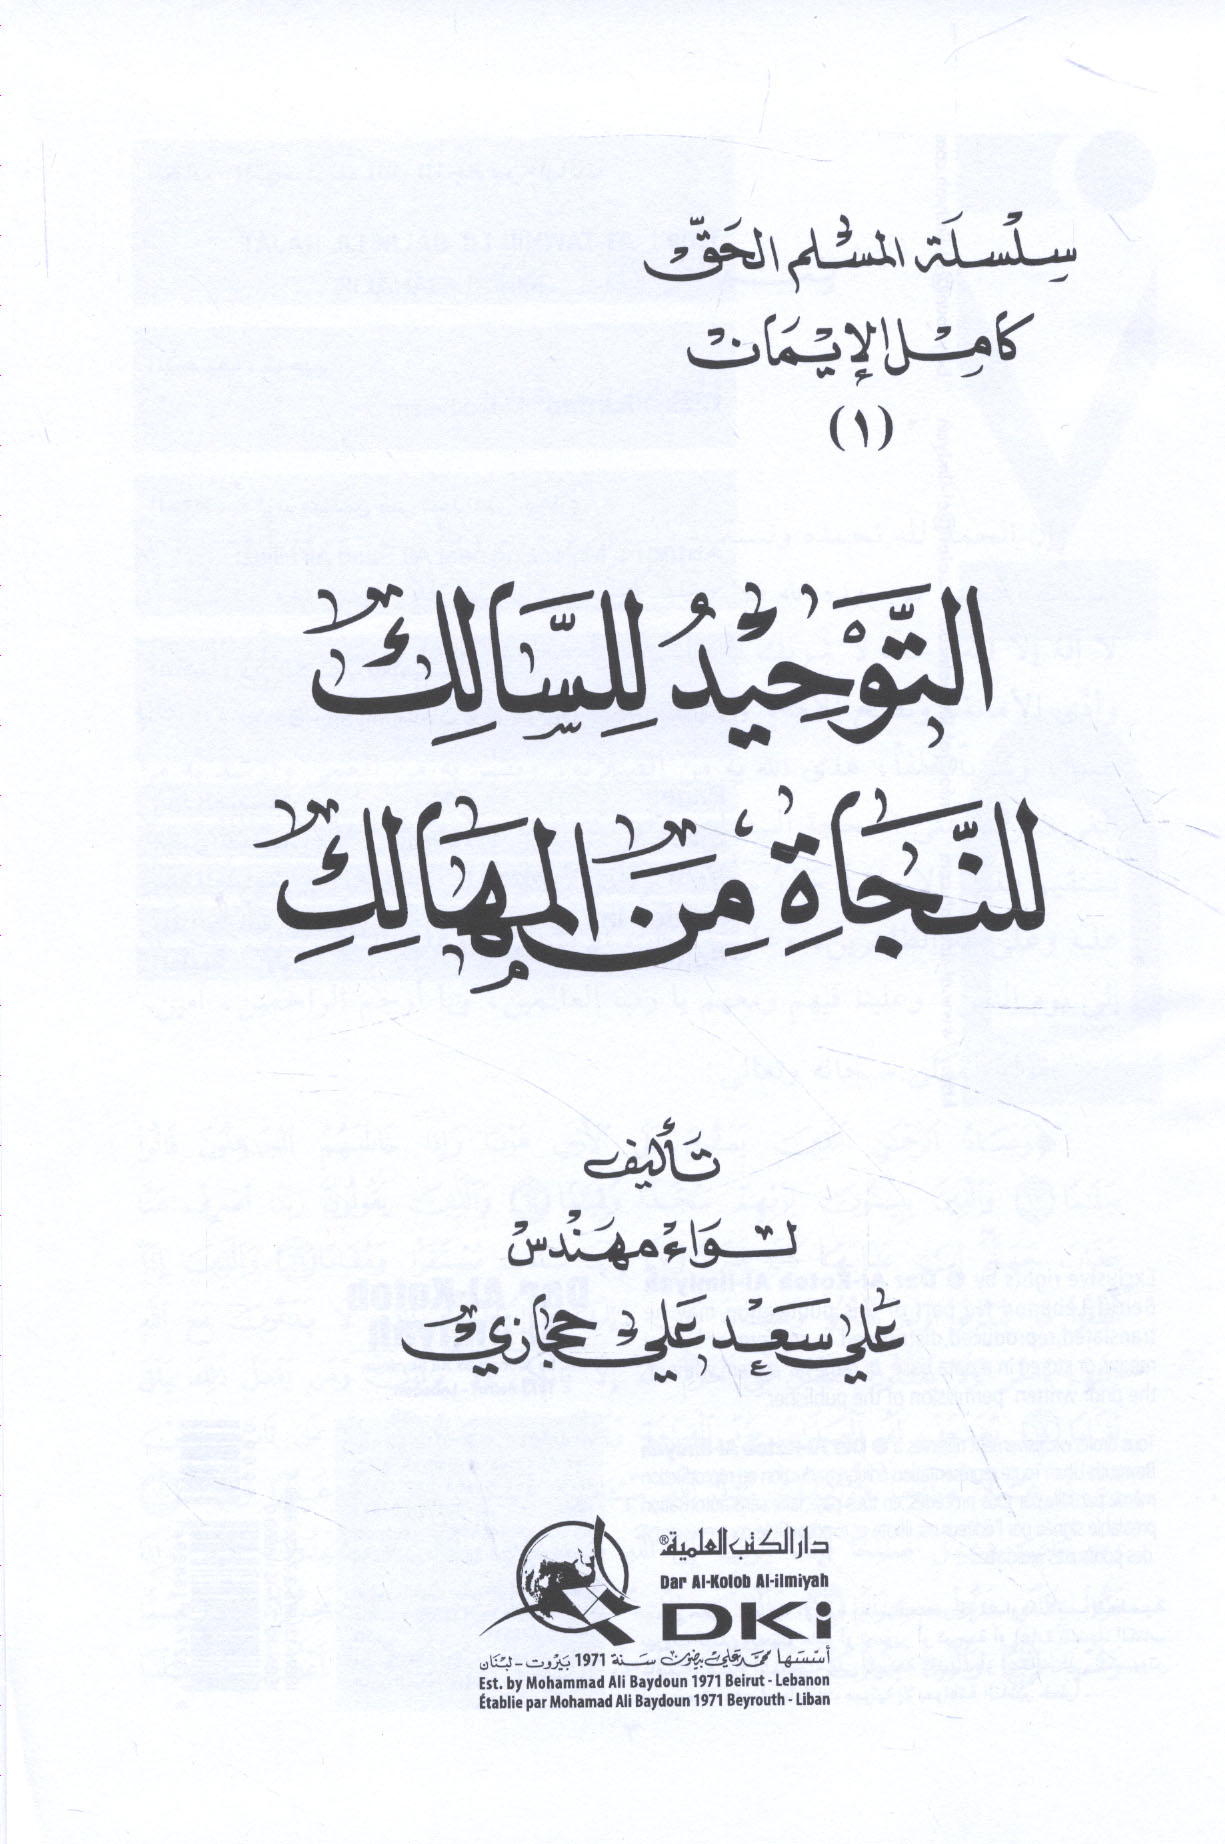 سِلْسلَة المسْلم الحَقّ
كامِل الإيْمَان
(١)
التَّوْحِيْدُ لِلسَّالِكْ
للنَّجَاةِ مِنَ المُهَالِكِ
تَأليف
لـوَاءْ مهَندْس
عَلي سَعِدْ عَلي حجَازيْ
دار الكتب العلمية®
Dar Al-Kotob Al-ilmiyah
DKi
أسّسَها محمد علي بيضون سَنة 1971 بَيرُوت - لبْنان
Est. by Mohammad Ali Baydoun 1971 Beirut - Lebanon
Établie par Mohamad Ali Baydoun 1971 Beyrouth - Liban